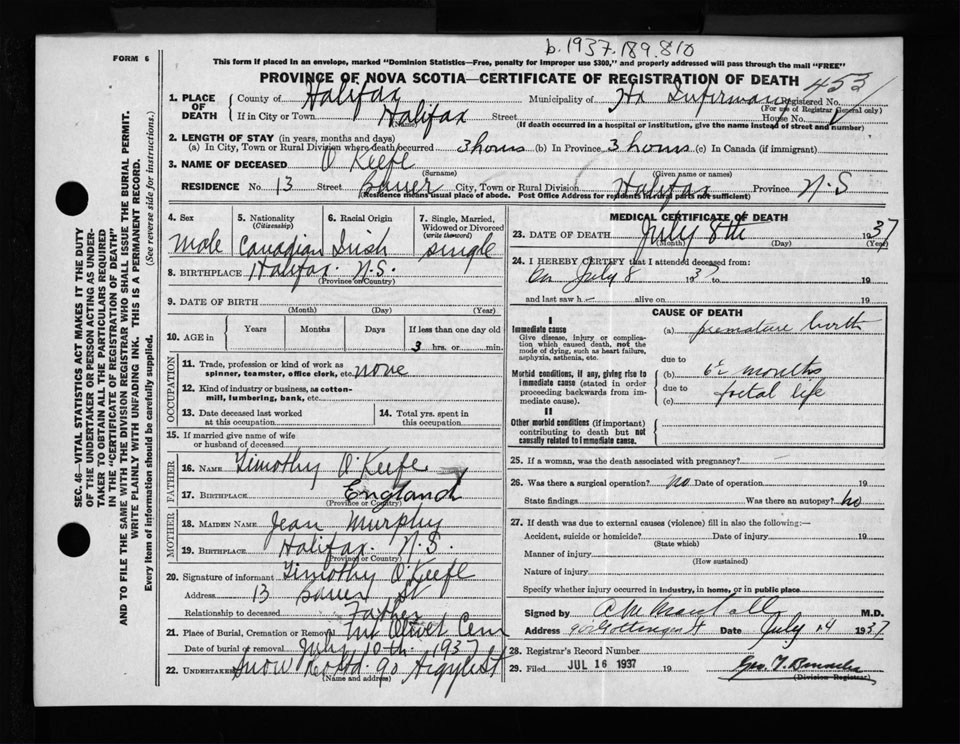 b.1937.189.810
FORM 6
This form if placed in an envelope, marked "Dominion Statistics—Free, penalty for improper use $300," and properly addressed will pass through the mail "FREE"
PROVINCE OF NOVA SCOTIA—CERTIFICATE OF REGISTRATION OF DEATH
453
1. PLACE OF DEATH
County of Halifax Municipality of Hx Infirmary Registered No.
(For use of Registrar General only)
If in City or Town Halifax Street House No.
(Name) (If death occurred in a hospital or institution, give the name instead of street and number)
2. LENGTH OF STAY (in years, months and days)
(a) In City, Town or Rural Division where death occurred 3 hours (b) In Province 3 hours (c) In Canada (if immigrant)
3. NAME OF DECEASED O'Keefe
(Surname) (Given name or names)
RESIDENCE No. 13 Street Bauer City, Town or Rural Division Halifax Province N.S
(Residence means usual place of abode. Post Office Address for residents in rural parts not sufficient)
4. Sex
Male
5. Nationality
(Citizenship)
Canadian
6. Racial Origin
Irish
7. Single, Married, Widowed or Divorced
(write the word)
single
8. BIRTHPLACE Halifax. N.S.
(Province or Country)
9. DATE OF BIRTH
(Month) (Day) (Year)
10. AGE in
Years Months Days If less than one day old
3 hrs. or min.
OCCUPATION
11. Trade, profession or kind of work as
spinner, teamster, office clerk, etc. none
12. Kind of industry or business, as cotton-
mill, lumbering, bank, etc.
13. Date deceased last worked
at this occupation
14. Total yrs. spent in
this occupation
15. If married give name of wife
or husband of deceased
FATHER
16. NAME Timothy O'Keefe
17. BIRTHPLACE England
(Province or Country)
MOTHER
18. MAIDEN NAME Jean Murphy
19. BIRTHPLACE Halifax. N.S.
(Province or Country)
20. Signature of informant Timothy O'Keefe
Address 13 Bauer St
Relationship to deceased Father
21. Place of Burial, Cremation or Removal Mt Olivet Cem
Date of burial or removal July 10th 1937
22. Undertaker Snow & Co Ltd. 90 Argyle St
(Name and address)
MEDICAL CERTIFICATE OF DEATH
23. DATE OF DEATH July 8th 1937
(Month) (Day) (Year)
24. I HEREBY CERTIFY that I attended deceased from:
On July 8 1937 to 19
and last saw h - alive on 19
CAUSE OF DEATH
I
Immediate cause
Give disease, injury or complica-
tion which caused death, not the
mode of dying, such as heart failure,
asphyxia, asthenia, etc.
(a) premature birth
due to
Morbid conditions, if any, giving rise to
immediate cause (stated in order
proceeding backwards from im-
mediate cause).
(b) 6½ months
due to
(c) foetal life
II
Other morbid conditions (if important)
contributing to death but not
causally related to immediate cause.
25. If a woman, was the death associated with pregnancy?
26. Was there a surgical operation? no Date of operation 19
State findings Was there an autopsy? no
27. If death was due to external causes (violence) fill in also the following:—
Accident, suicide or homicide? Date of injury 19
(State which)
Manner of injury
(How sustained)
Nature of injury
Specify whether injury occurred in industry, in home, or in public place
Signed by M.D.
Address Gottingen St Date July 14 1937
28. Registrar's Record Number
29. Filed JUL 16 1937 19
(Division Registrar)
SEC. 46—VITAL STATISTICS ACT MAKES IT THE DUTY
OF THE UNDERTAKER OR PERSON ACTING AS UNDER-
TAKER TO OBTAIN ALL THE PARTICULARS REQUIRED
IN THE "CERTIFICATE OF REGISTRATION OF DEATH"
AND TO FILE THE SAME WITH THE DIVISION REGISTRAR WHO SHALL ISSUE THE BURIAL PERMIT.
WRITE PLAINLY WITH UNFADING INK. THIS IS A PERMANENT RECORD.
Every item of information should be carefully supplied. (See reverse side for instructions.)